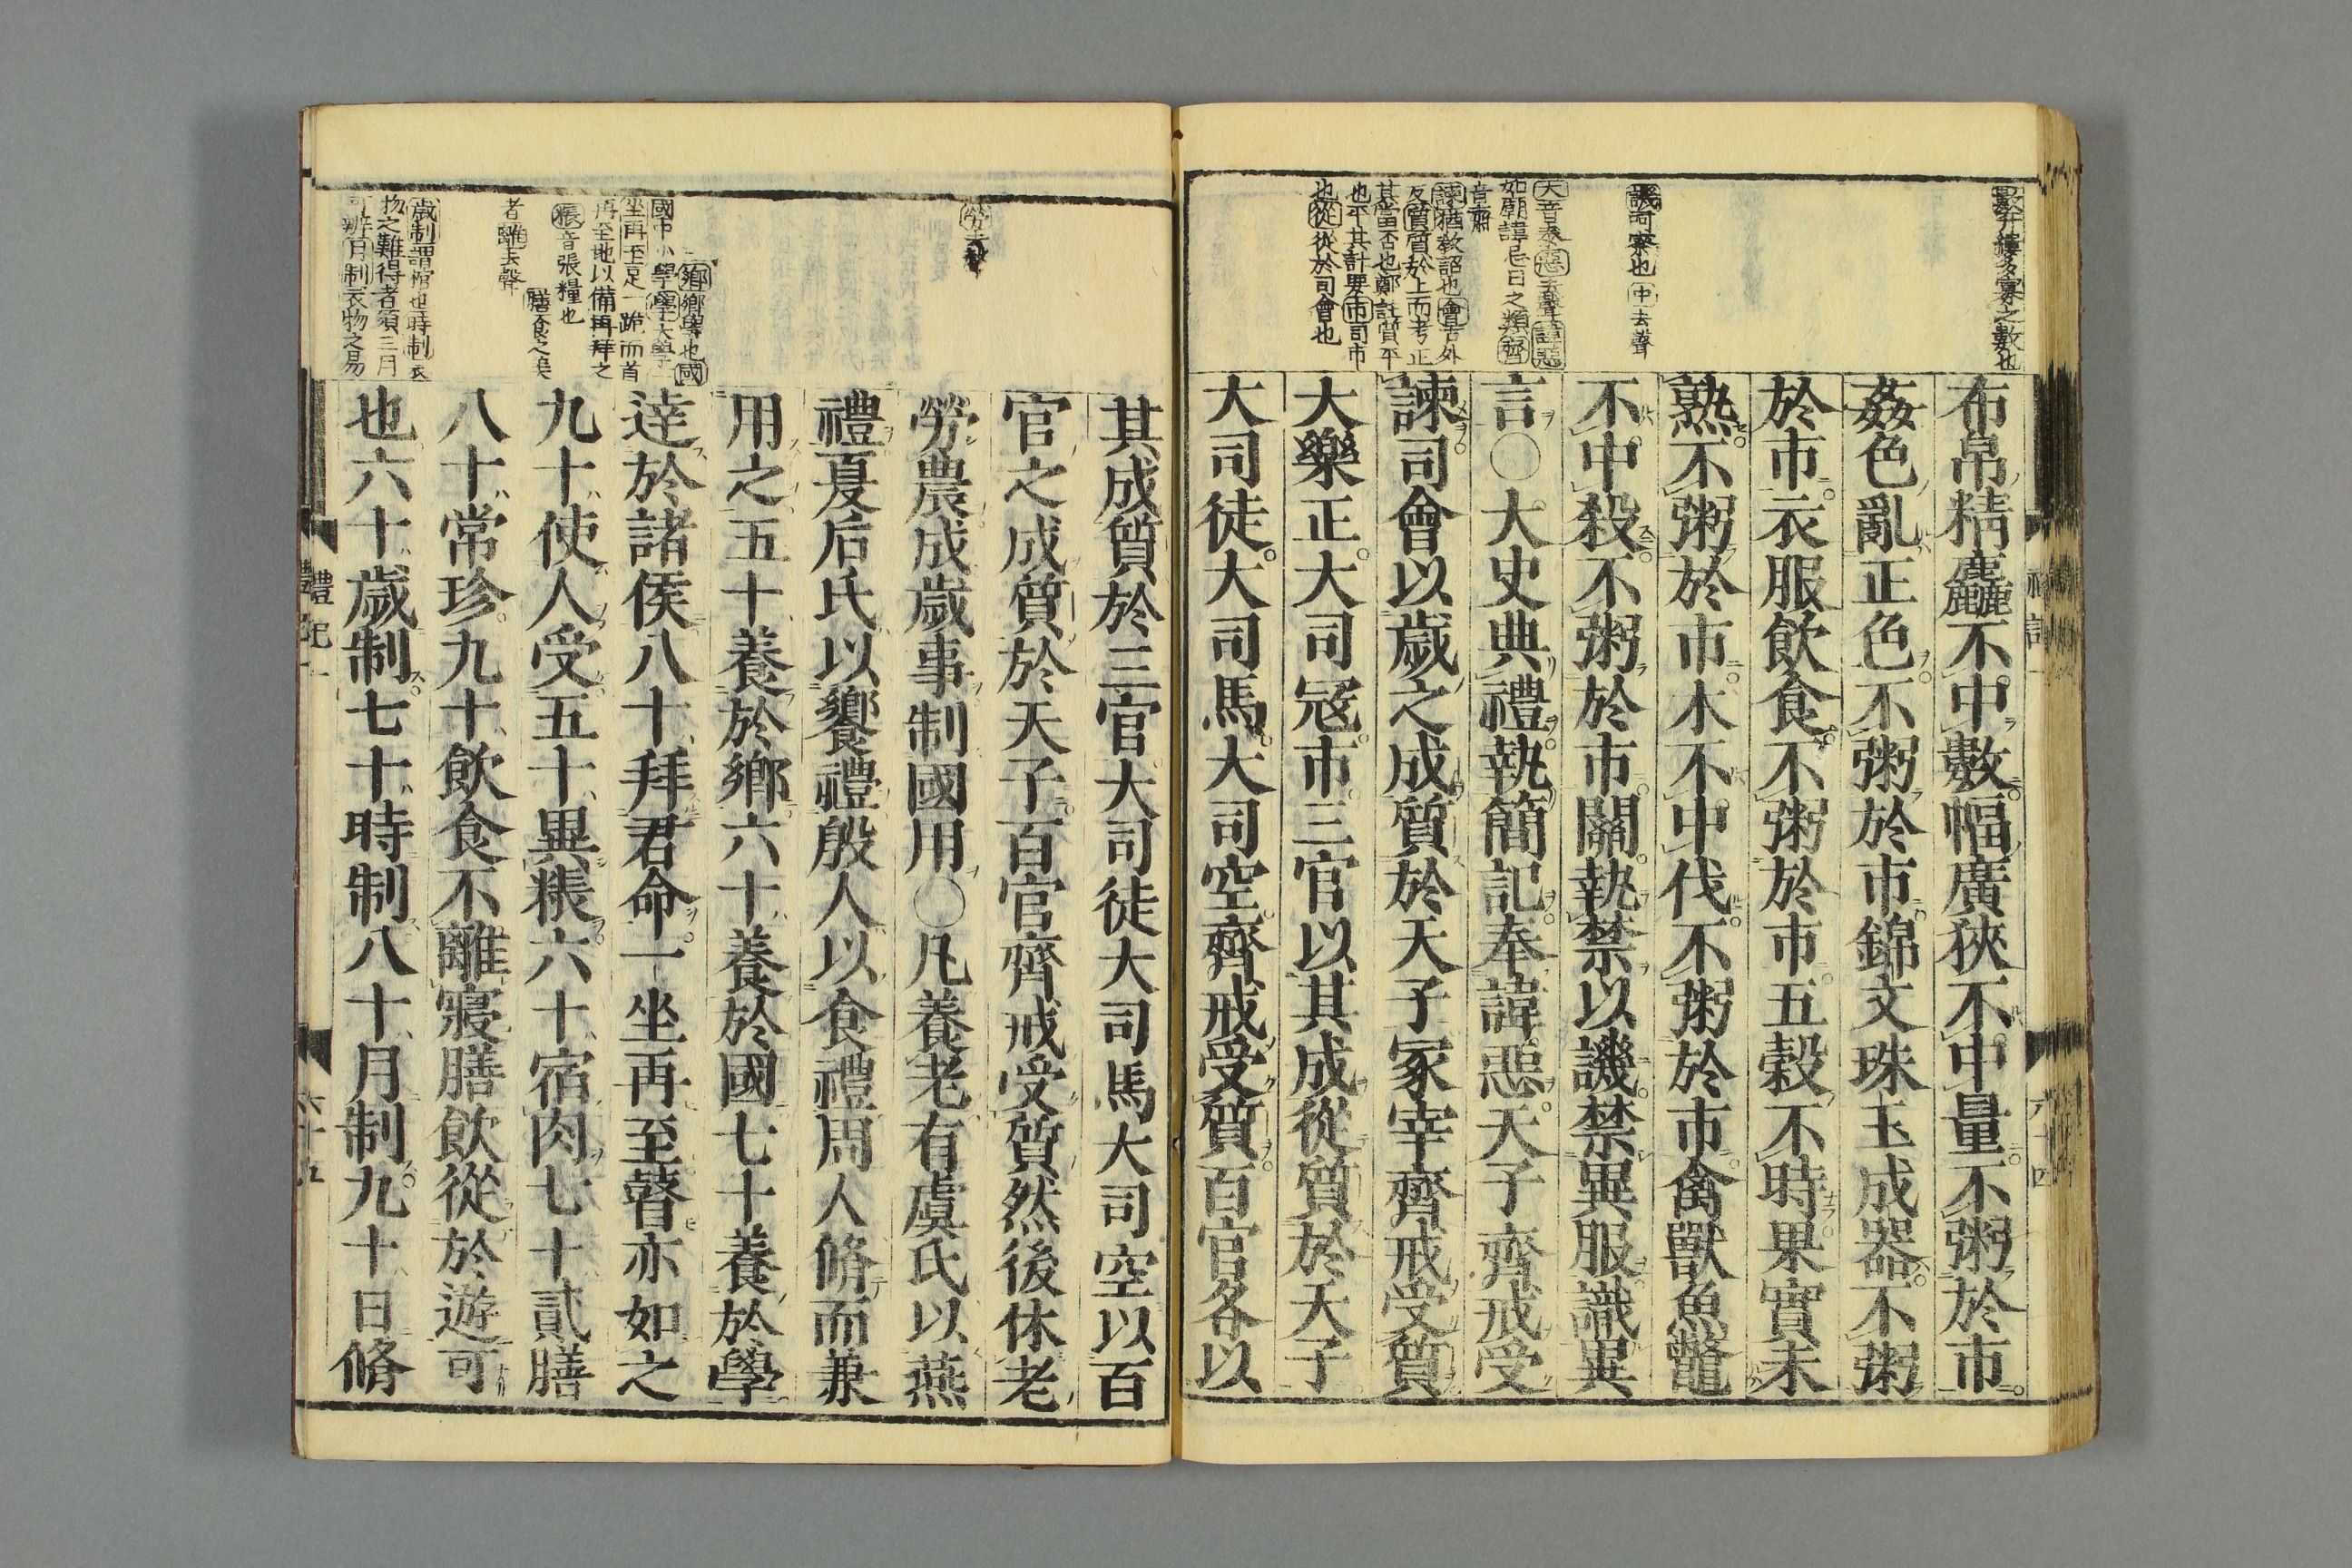 布帛精麤不中數幅廣狹不中量不粥於市
姦色亂正色不粥於市錦文珠玉成器不粥
於市衣服飲食不粥於市五穀不時果實未
熟不粥於市木不中伐不粥於市禽獸魚鼈
不中殺不粥於市關執禁以譏禁異服識異
言〇大史典禮執簡記奉諱惡天子齊戒受
諫司會以歲之成質於天子冢宰齊戒受質
大樂正大司冦市三官以其成從質於天子
大司徒大司馬大司空齊戒受質百官各以
數升縷多寡之數也
譏呵察也 中去聲
大音泰惡去聲諱惡
如廟諱忌日之類齊
音齋
諫猶敎詔也會古外
反質質於上而考正
其當否也鄭註質平
也平其計要市司市
也從從於司會也
其成質於三官大司徒大司馬大司空以百
官之成質於天子百官齊戒受質然後休老
勞農成歲事制國用〇凡養老有虞氏以燕
禮夏后氏以饗禮殷人以食禮周人脩而兼
用之五十養於鄉六十養於國七十養於學
達於諸侯八十拜君命一坐再至瞽亦如之
九十使人受五十異粻六十宿肉七十貳膳
八十常珍九十飲食不離寢膳飲從於遊可
也六十歲制七十時制八十月制九十日脩
勞去聲
鄉鄉學也國
國中小學學大學
坐再至足一跪而首
再至地以備再拜之
粻音張糧也
膳食之美
者離去聲
歲制謂棺也時制衣
物之難得者須三月
可辨月制衣物之易
禮記一
六十五